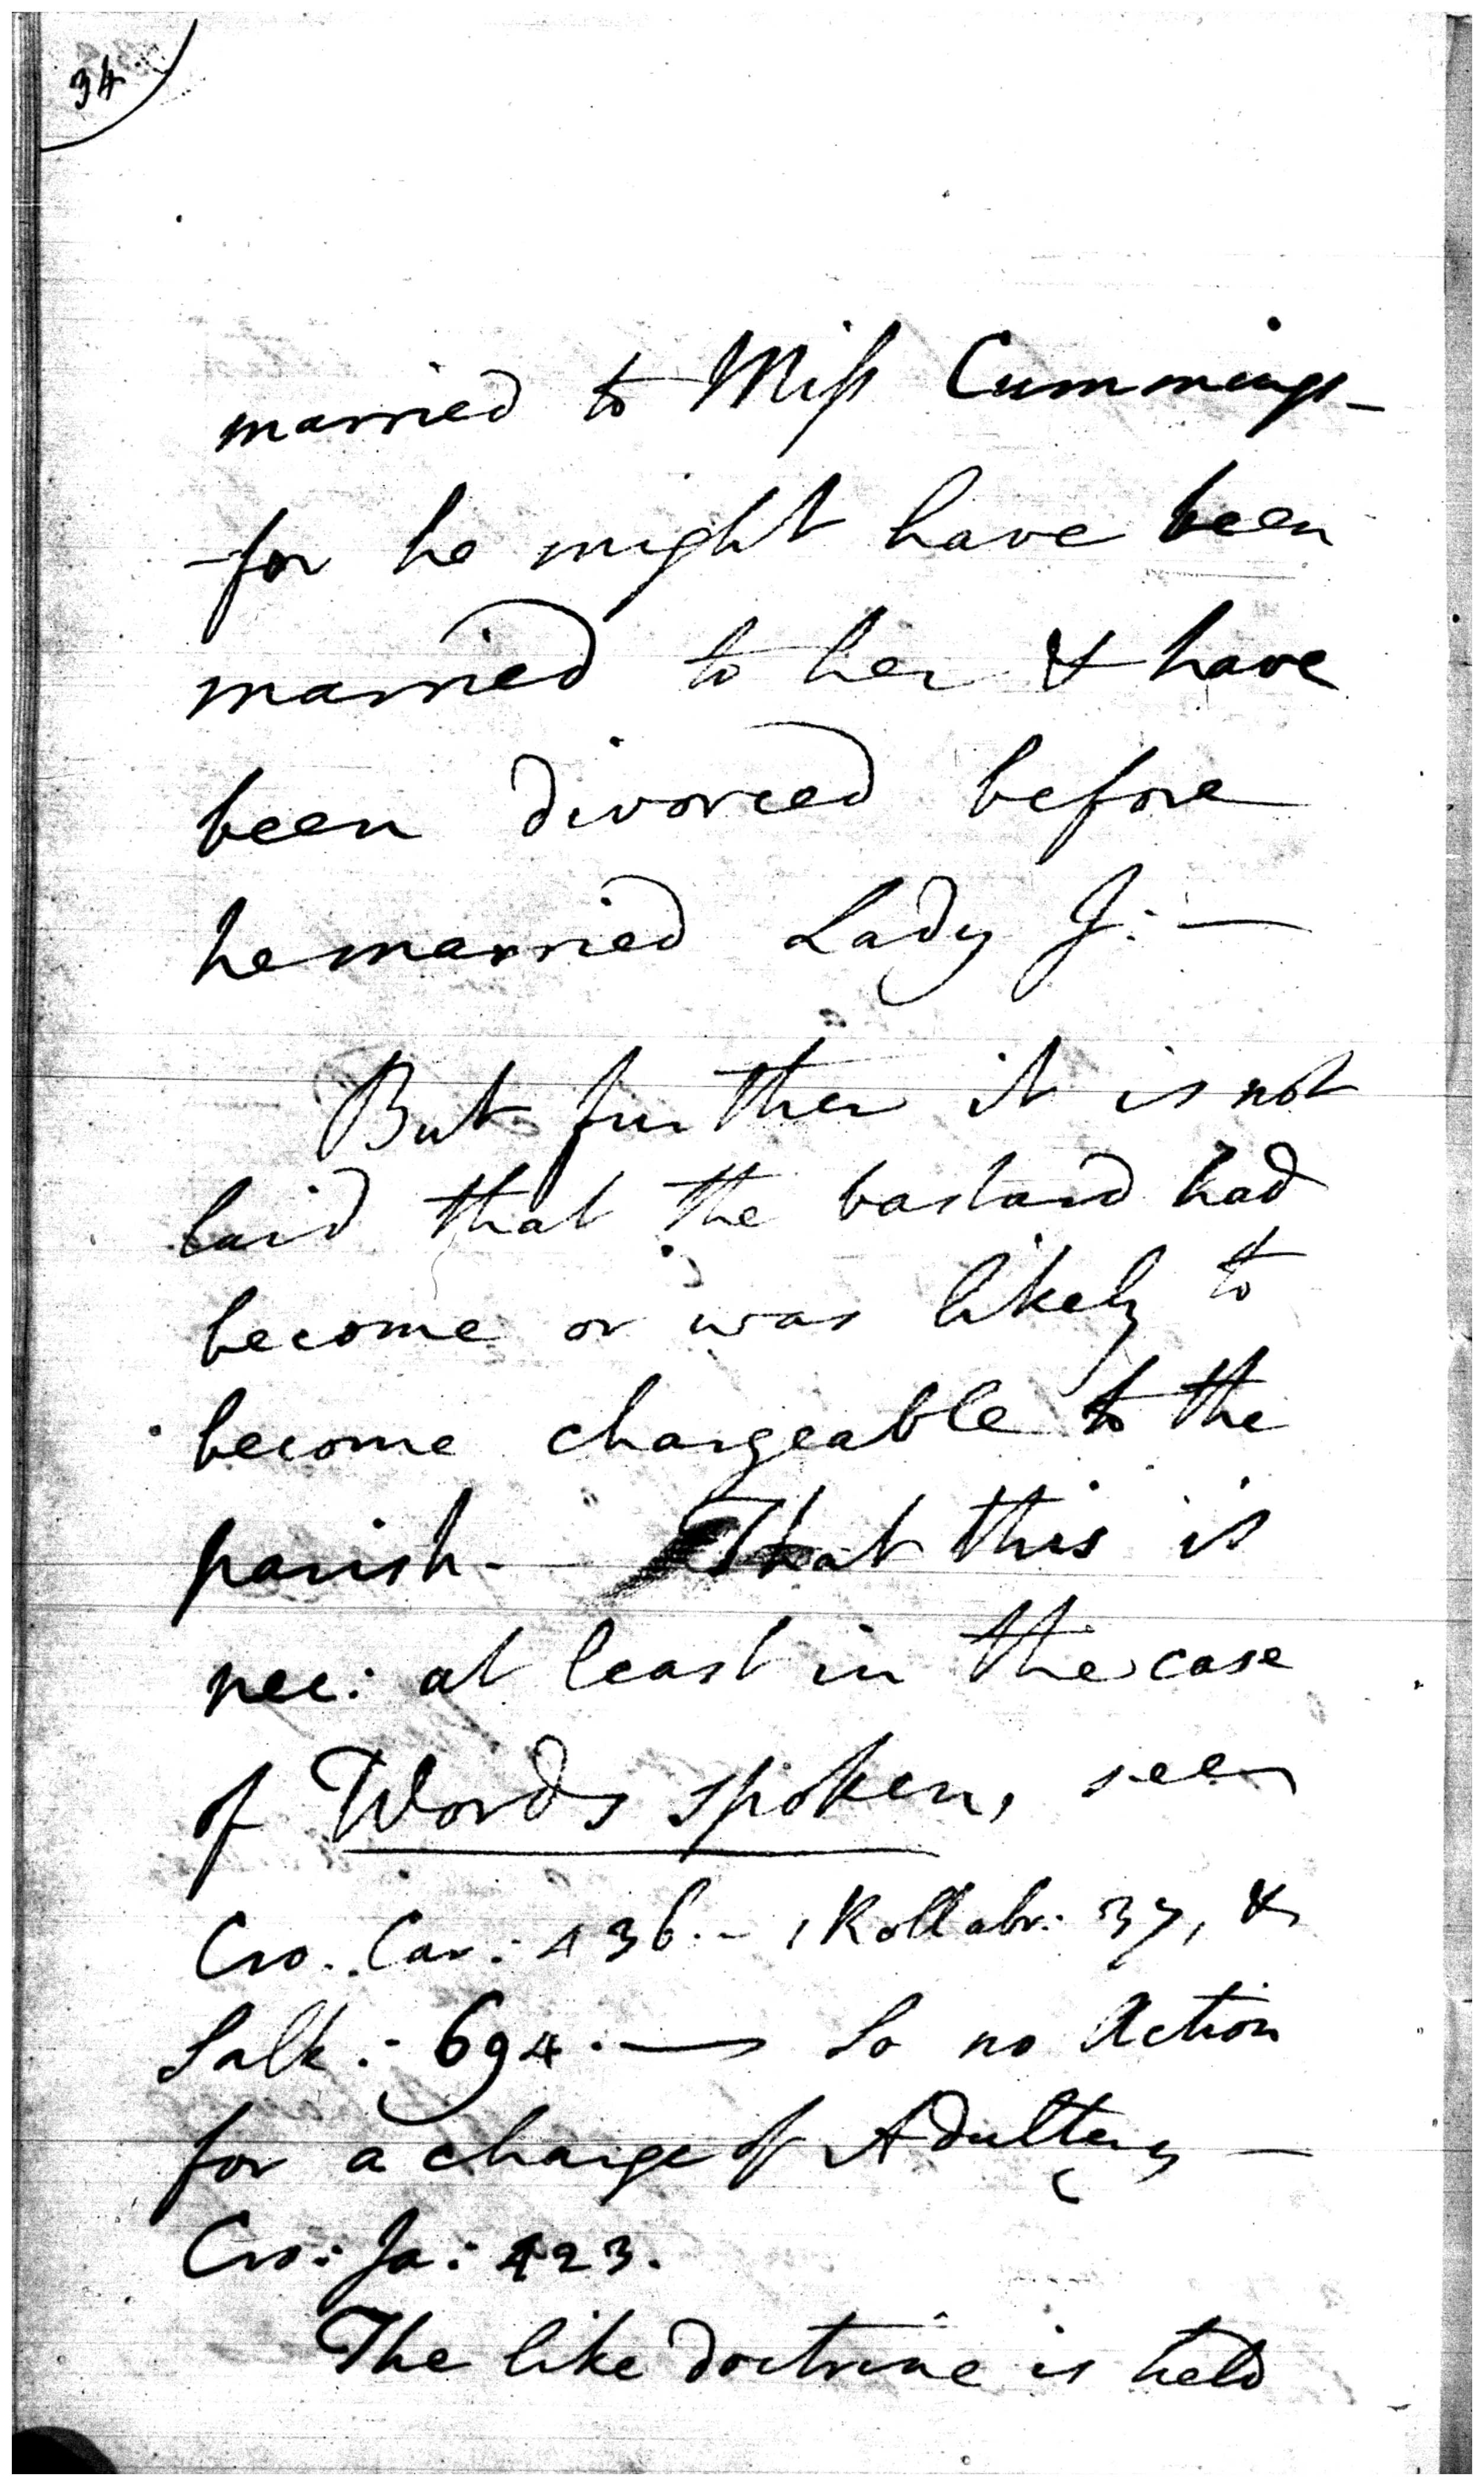 34
married to Miſs Cummings -
for he might have been
married to her & have
been divorced before
he married Lady J: —
But further it is not
laid that the bastard had
become or was likely to
become chargeable to the
parish - That this is
nec: at least in the case
of Words spoken, see
Cro. Car: 436. - 1 Roll abr: 37, &
Salk: 694. — So no Action
for a charge of Adultery —
Cro: Ja: 423.
The like doctrine is held